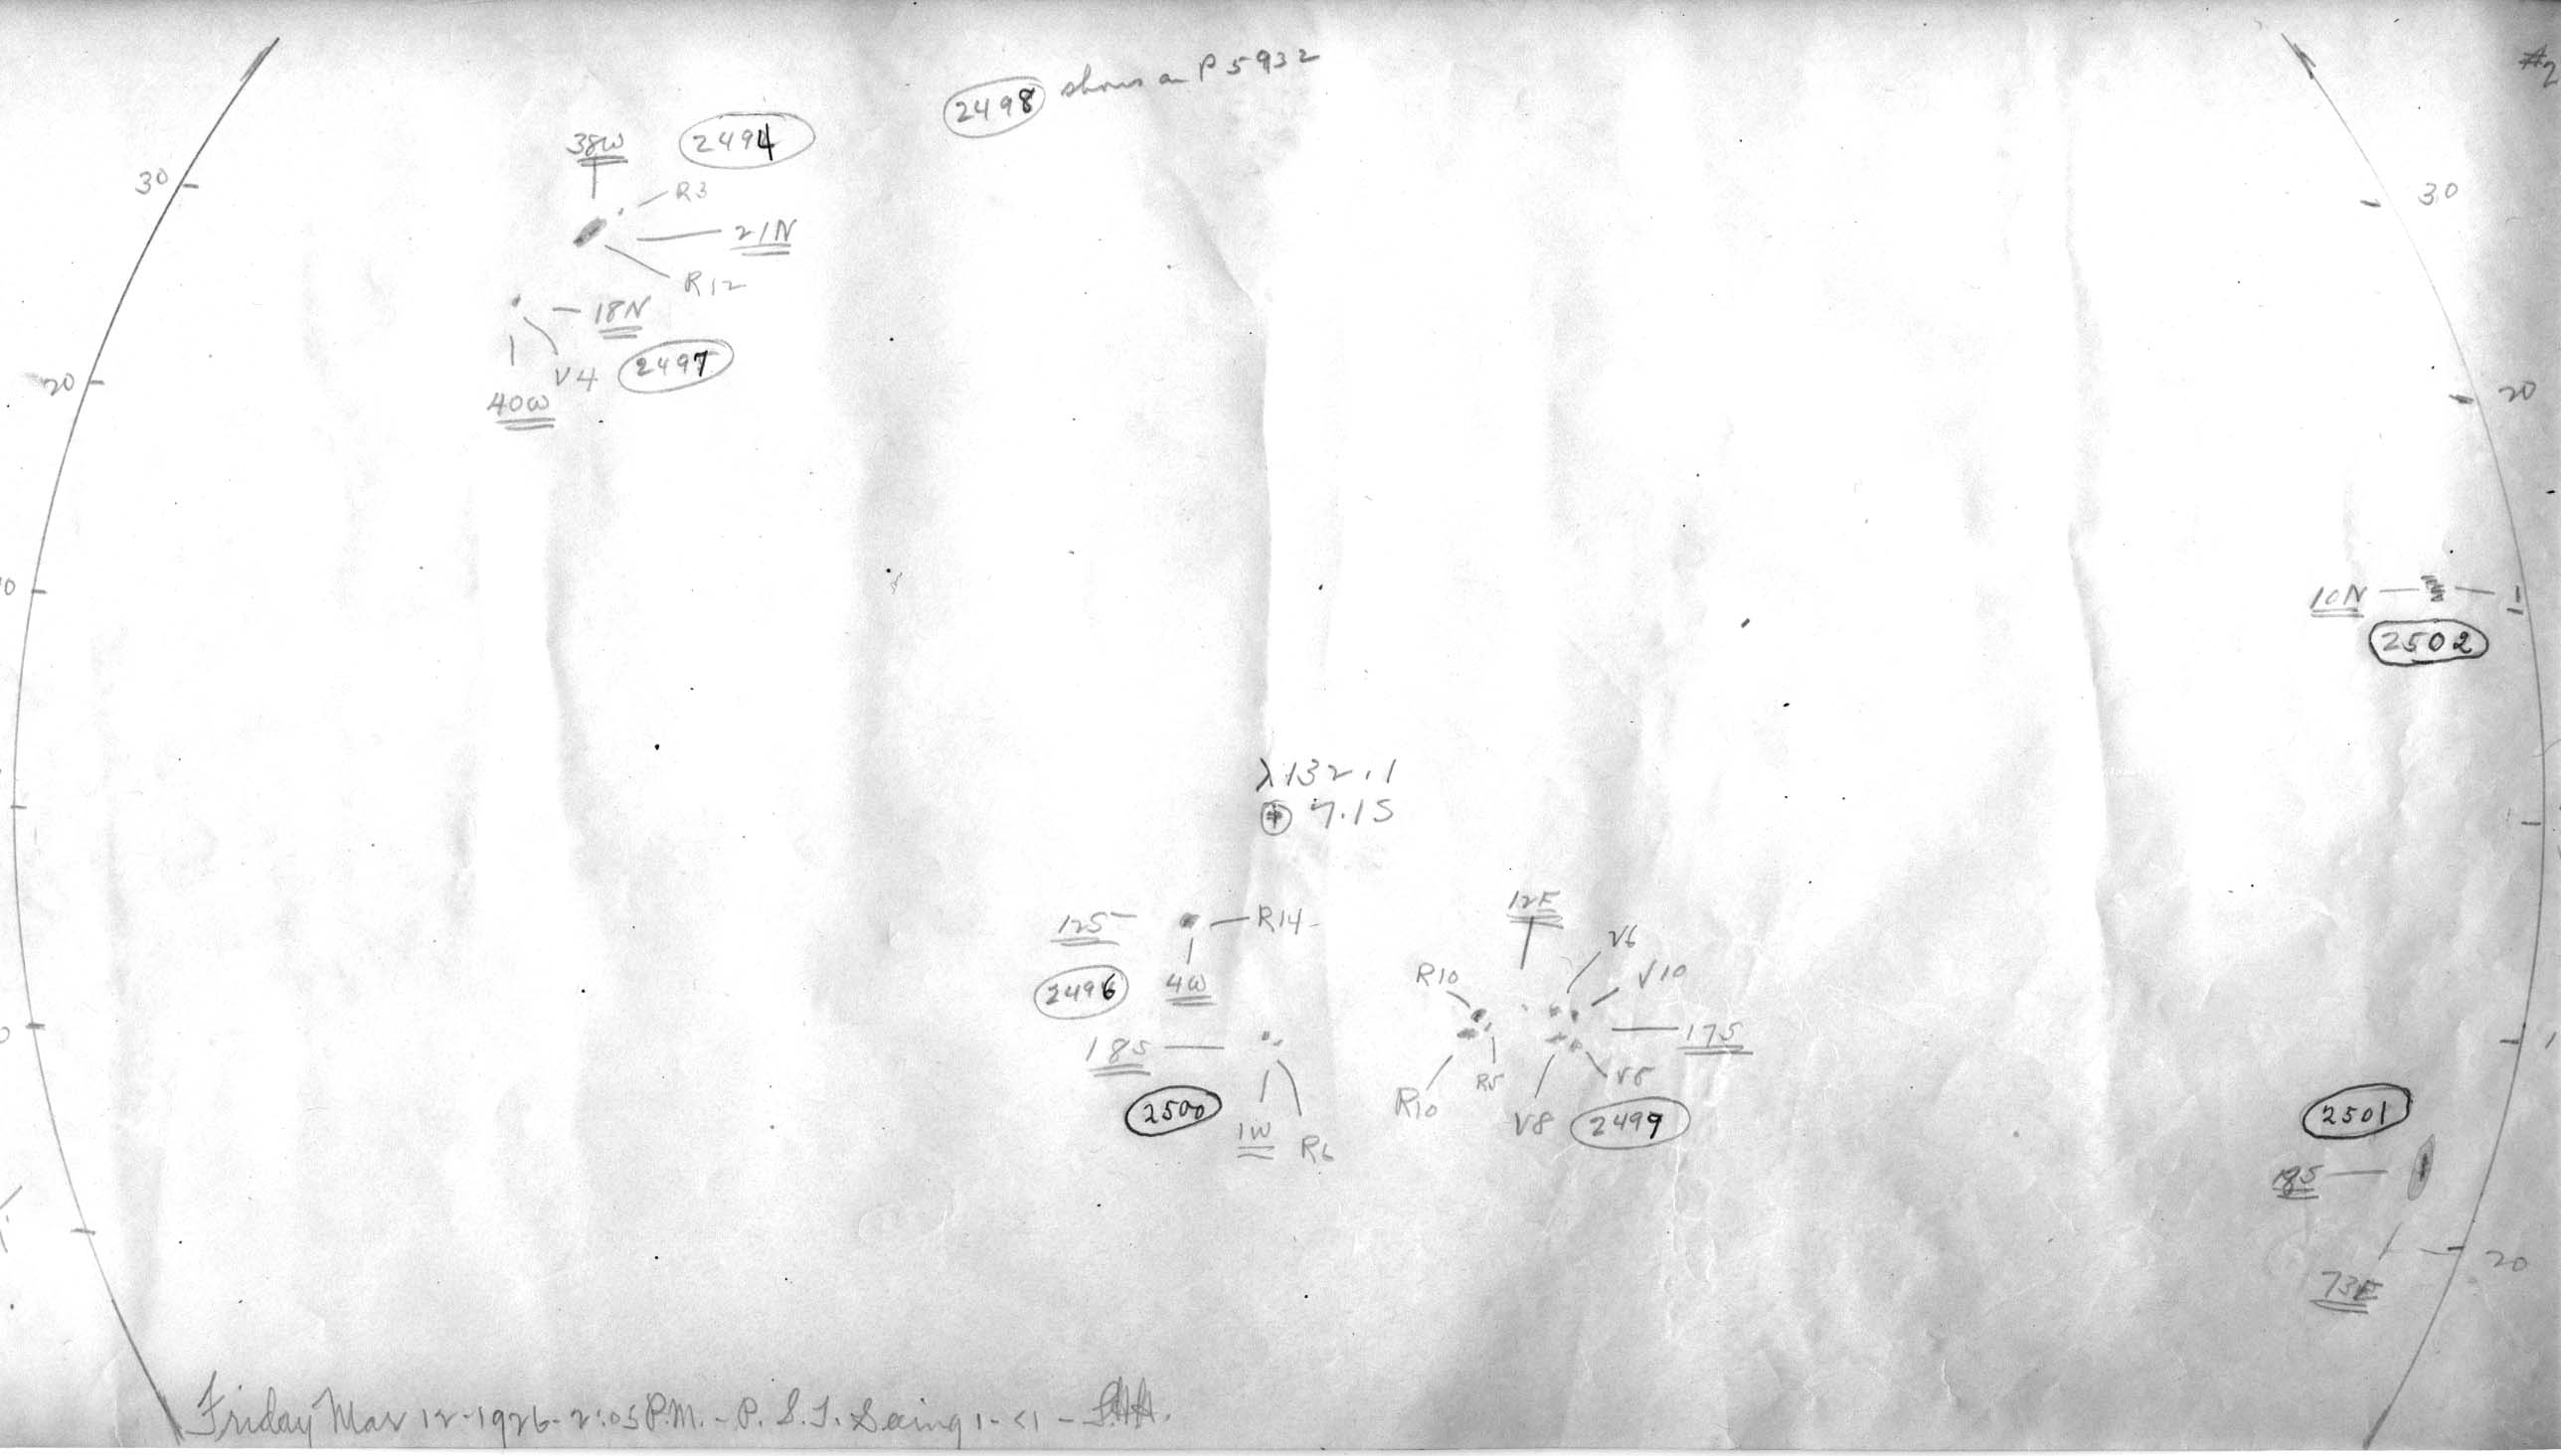 #2
2498 shows on P 5932
38W 2494
R3
30
30
21N
R12
18N
V4 2497
20
20
40W
10N
2502
λ 132.1
7.15
12E
12S R14
V6
R10 V10
2496 4W
17S
18S
R5 V8
R10
2500
V8 2499
1W R6
2501
18S
20
73E
Friday Mar 12-1926-2:05 P.M. - P. S. T. Seeing 1-<1 -